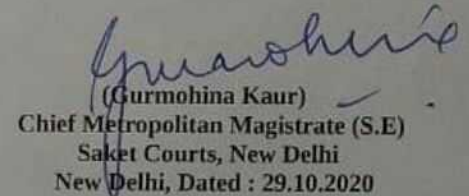 (Gurmohina Kaur)
Chief Metropolitan Magistrate (S.E)
Saket Courts, New Delhi
New Delhi, Dated : 29.10.2020